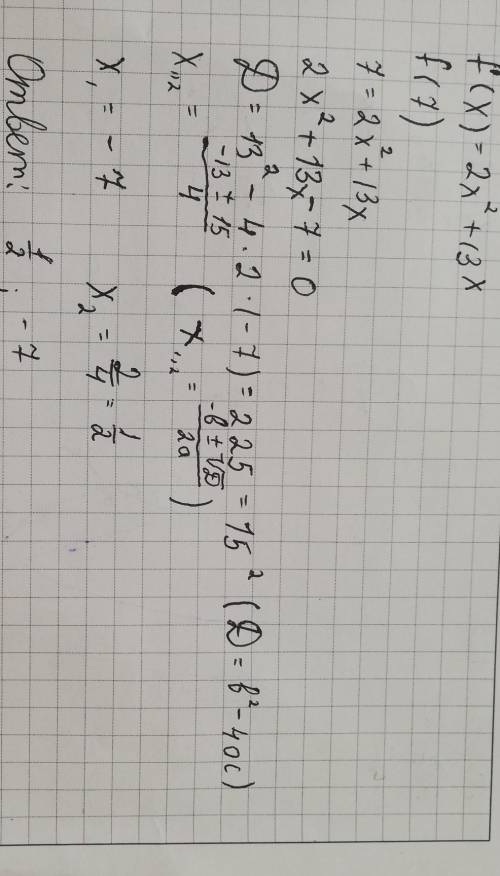 f(x) = 2x² + 13x
f(7)
7 = 2x² + 13x
2x² + 13x - 7 = 0
D = 13² - 4 · 2 · (-7) = 225 = 15² (D = b² - 4ac)
x₁,₂ = (-13 ± 15)/4 (x₁,₂ = (-b ± √D)/2a)
x₁ = -7 x₂ = 2/4 = 1/2
Ответ: 1/2; -7